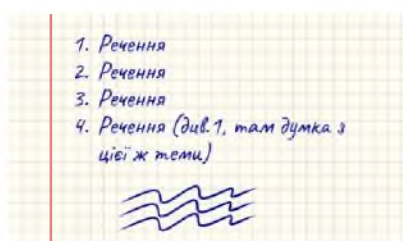 1. Речення
2. Речення
3. Речення
4. Речення (див.1, там думка з
цієї ж теми)